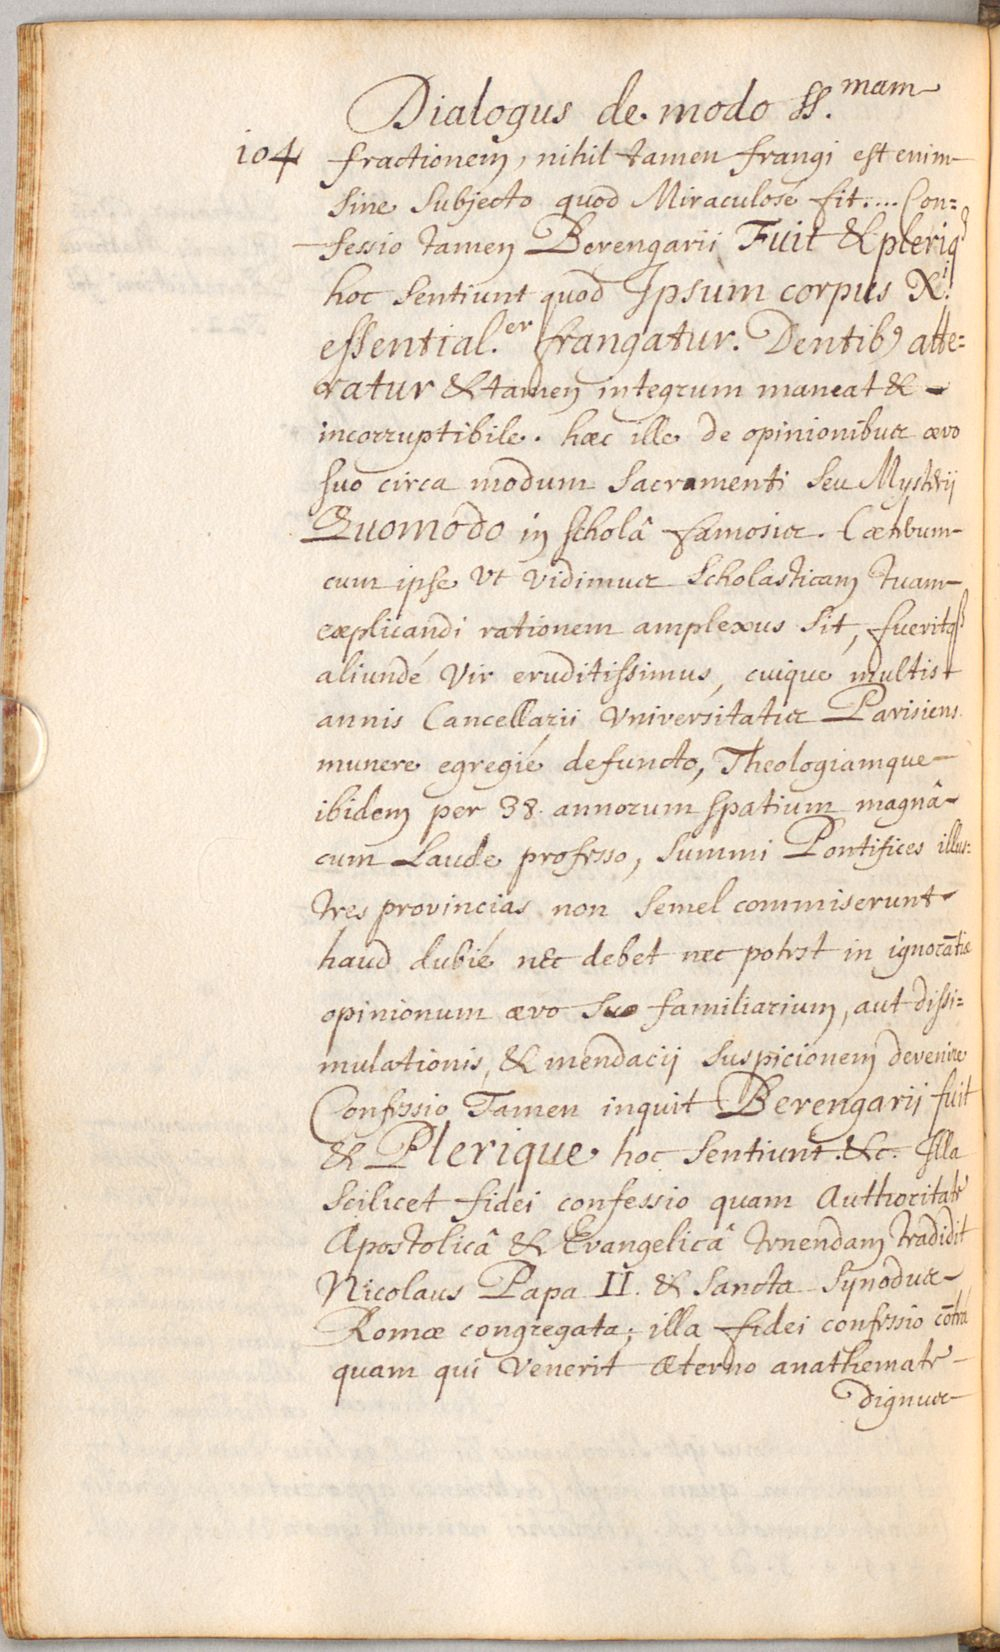 Dialogus de modo SS.mam
104 fractionem, nihil tamen frangi est enim
sine Subjecto quod Miraculosé fit.... Con=
fessio tamen Berengarii Fuit & pleriq
hoc Sentiunt quod Ipsum corpus Xi.
essential.er frangatur. Dentib9 atte=
ratur & tamen integrum maneat &
incorruptibile. hæc ille de opinionibus ævo
suo circa modum Sacramenti Seu Mysterij
Quomodo in scholâ famosis. Cæterum
cum ipse Ut Vidimus Scholasticam tuam
explicandi rationem amplexus Sit, fueritq
aliundé Vir eruditissimus, cuique multis
annis Cancellarii Universitatis Parisiens
munere egregié defuncto, Theologiamque
ibidem per 38. annorum spatium magnâ
cum Laude professo, Summi Pontifices illus=
tres provincias non Semel commiserunt
haud dubié nec debet nec potest in ignorãtiæ
opinionum ævo Suo familiarium, aut dissi=
mulationis, & mendacij Suspicionem devenire
Confessio Tamen inquit Berengarij fuit
& Plerique hoc Sentiunt &c. Illa
Scilicet fidei confessio quam Authoritate
Apostolicâ & Evangelicâ tenendam tradidit
Nicolaus Papa II. & Sancta Synodus
Romæ congregata; illa fidei confessio cõtrá
quam qui Venerit æterno anathemate
Dignus